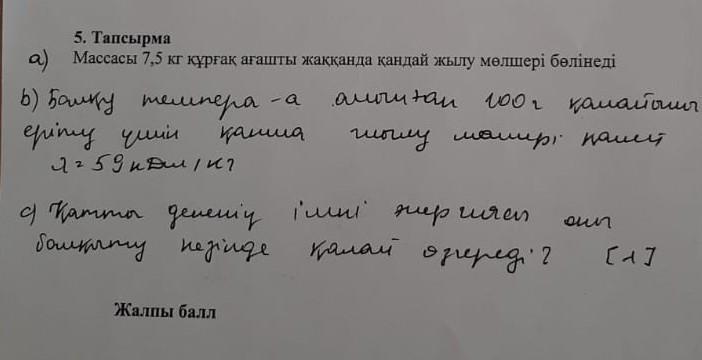 5. Тапсырма
а) Массасы 7,5 кг құрғақ ағашты жаққанда қандай жылу мөлшері бөлінеді
b) Балқу темпера-а алынған 100 г қалайыны
еріту үшін қанша жылу мөлшері қажет
λ = 59 кДж/кг
c) Қатты дененің ішкі энергиясы оны
балқыту кезінде қалай өзгереді? [1]
Жалпы балл